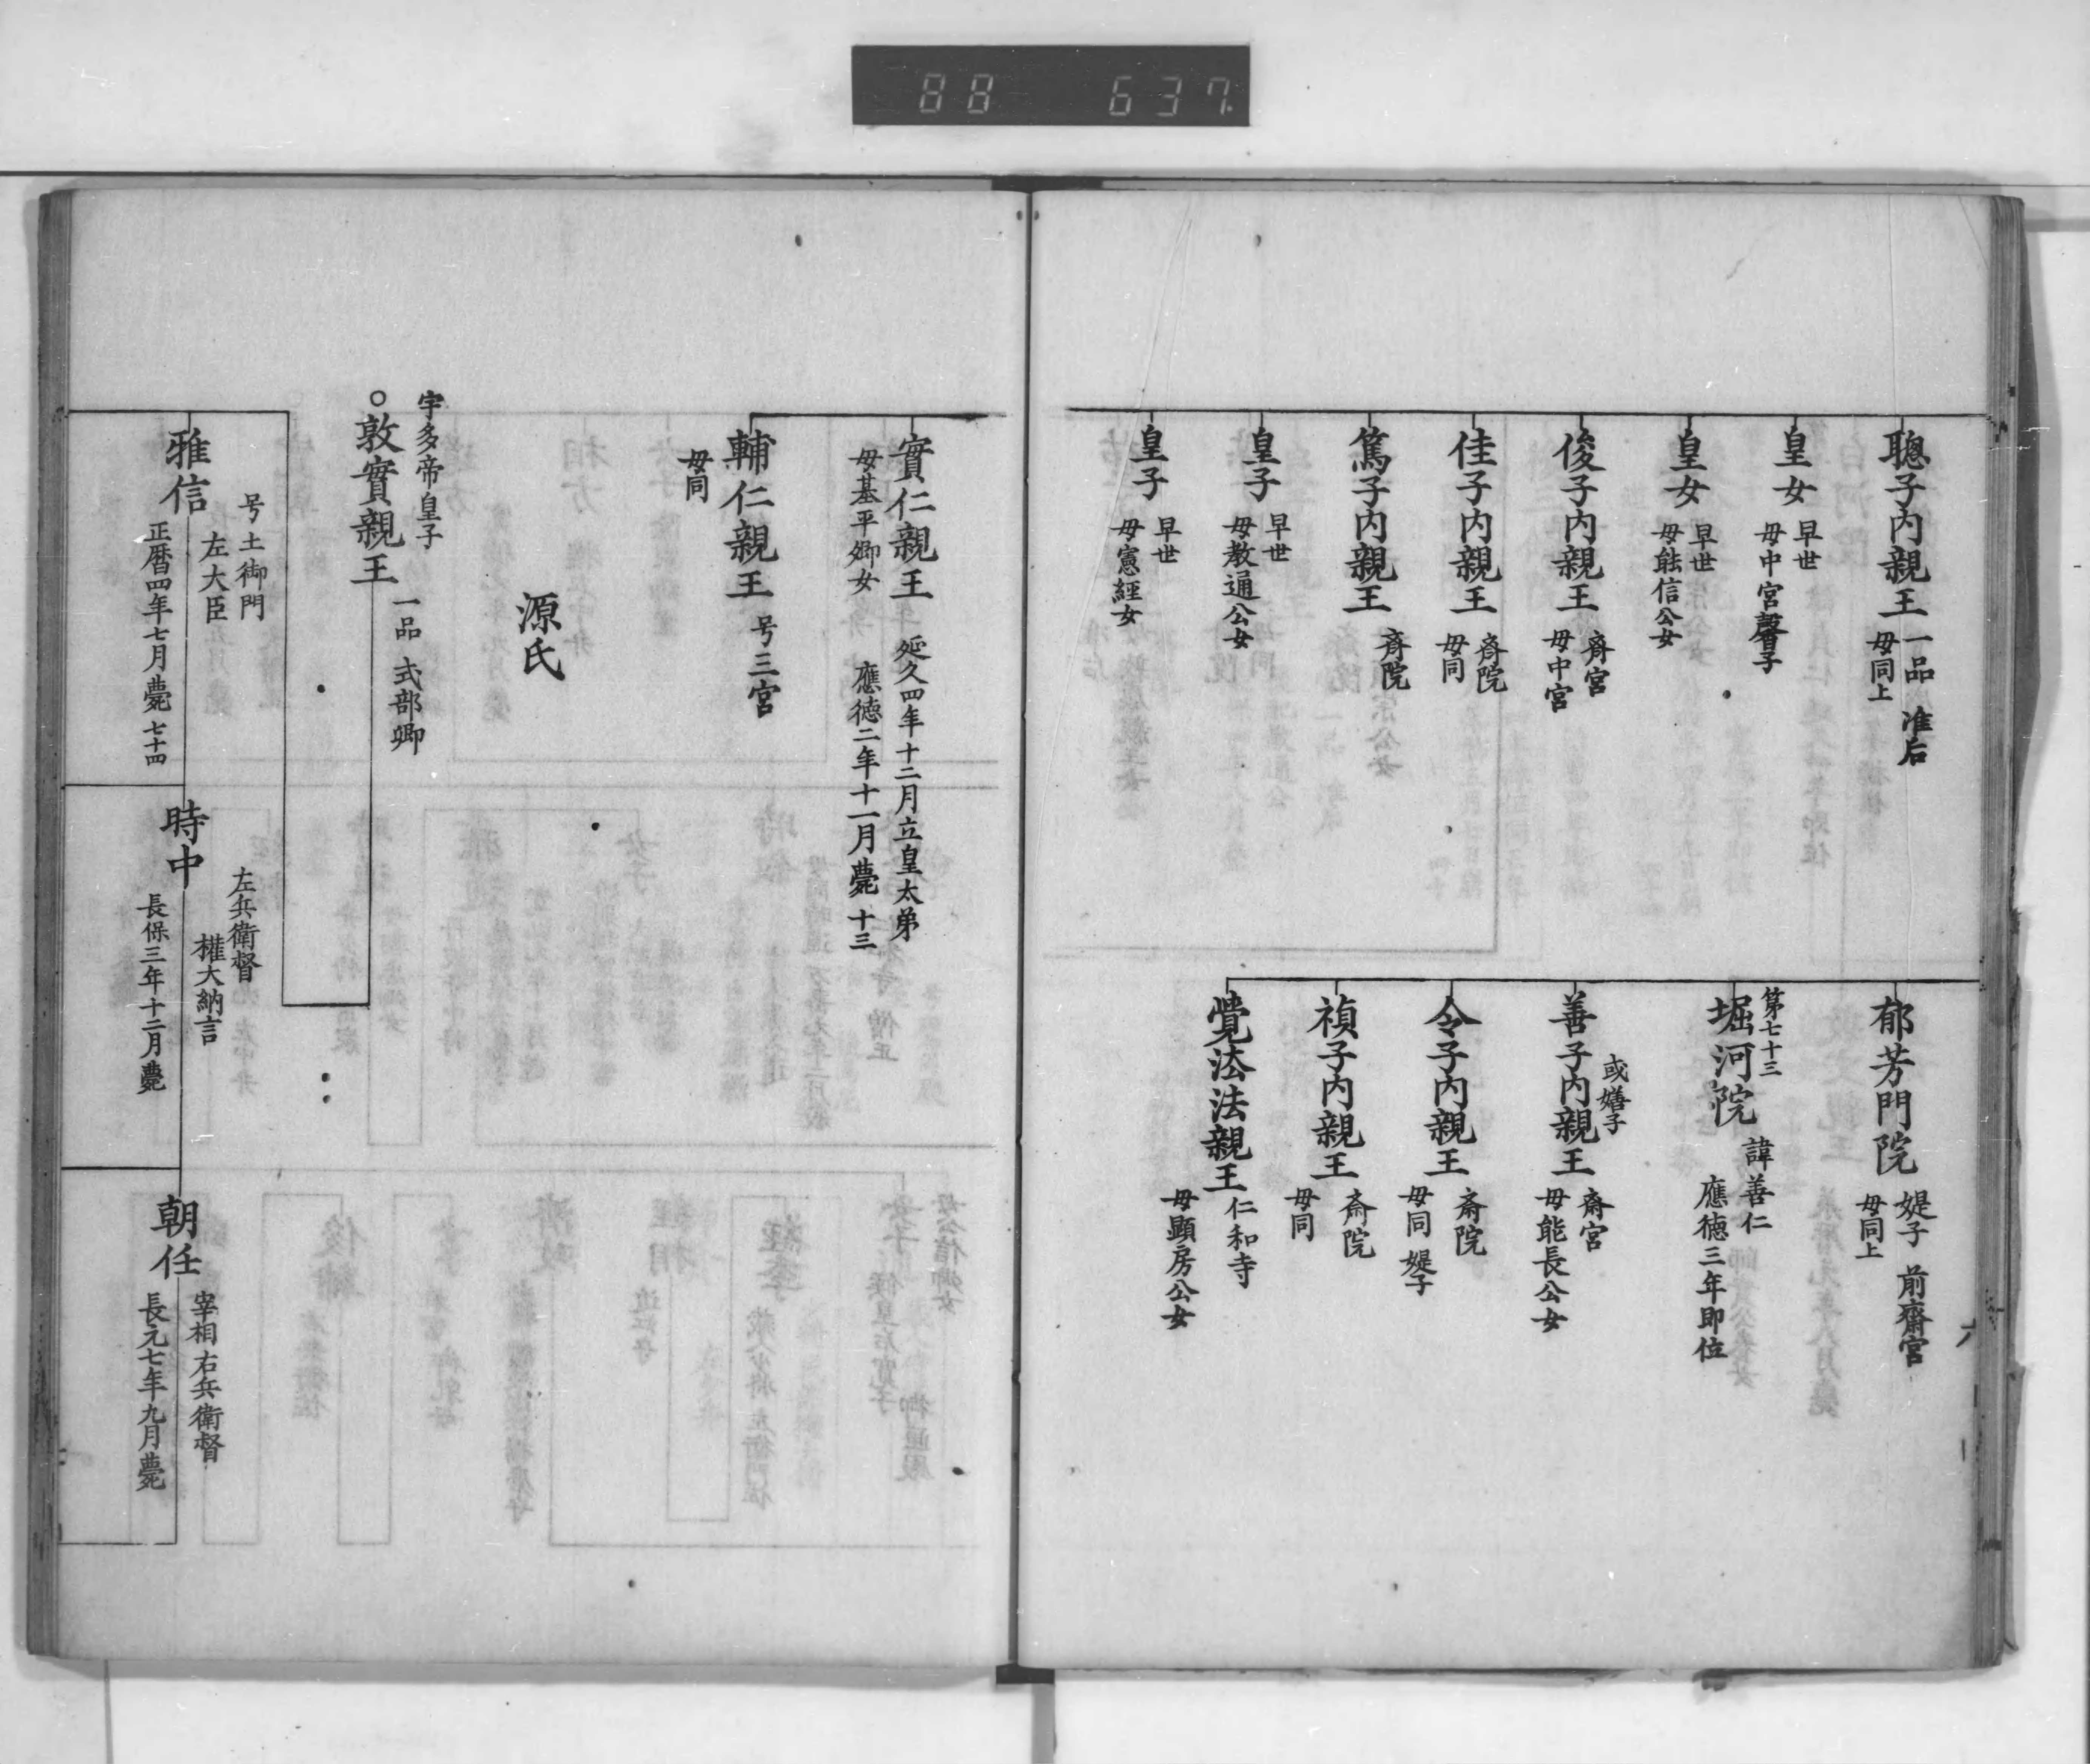 88 637
聰子内親王 一品 准后
母同上
皇女 早世
母中宮馨子
皇女 早世
母能信公女
俊子内親王 斉宮
母中宮
佳子内親王 斉院
母同
篤子内親王 斉院
皇子 早世
母教通公女
皇子 早世
母憲經女
郁芳門院 媞子 前齋宮
母同上
第七十三
堀河院 諱善仁
應徳三年即位
或嫸子
善子内親王 斎宮
母能長公女
令子内親王 斎院
母同 媞子
禎子内親王 斎院
母同
覺法法親王 仁和寺
母顕房公女
實仁親王 延久四年十二月立皇太弟
母基平卿女 應徳二年十一月薨 十三
輔仁親王 号三宮
母同
源氏
宇多帝皇子
○敦實親王 一品 式部卿
号土御門
左大臣
雅信
正暦四年七月薨 七十四
左兵衛督
権大納言
時中
長保三年十二月薨
朝任 宰相右兵衛督
長元七年九月薨